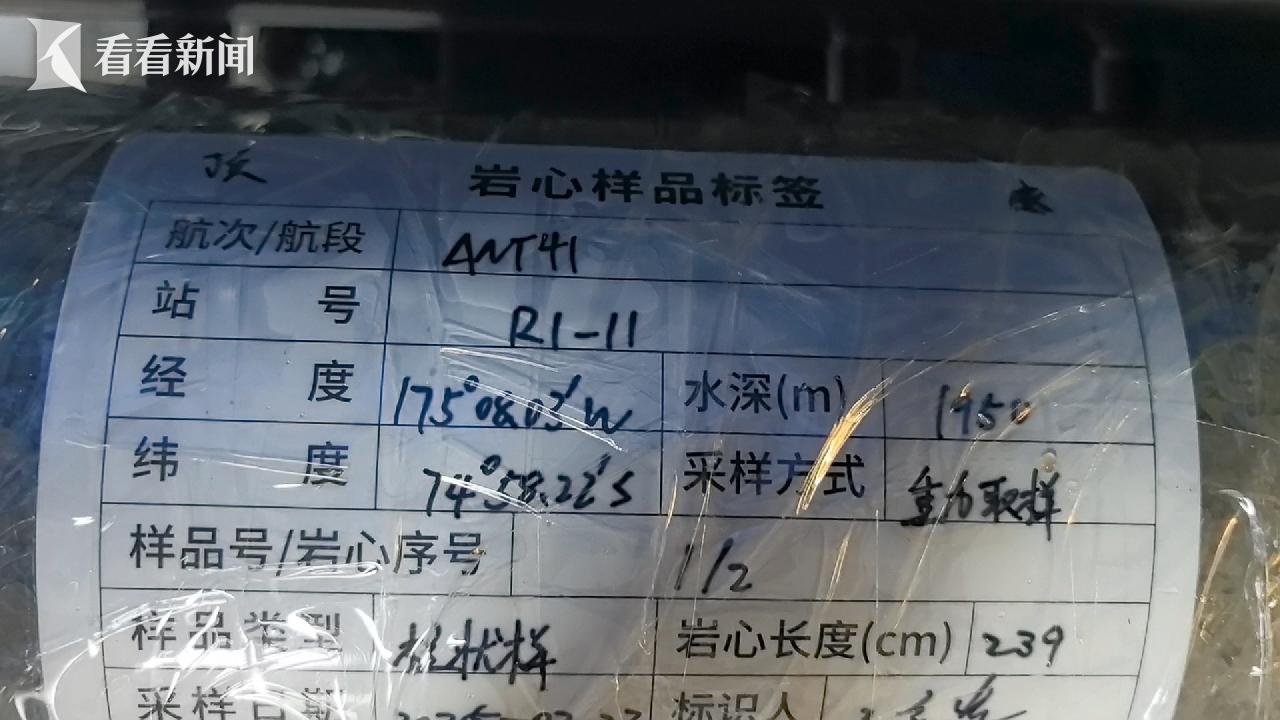 看看新闻
顶 岩心样品标签 底
航次/航段 ANT41
站号 R1-11
经度 175°08.03'W 水深(m) 1950
纬度 74°58.22'S 采样方式 重力取样
样品号/岩心序号 1/2
样品类型 柱状样 岩心长度(cm) 239
采样日期 标识人